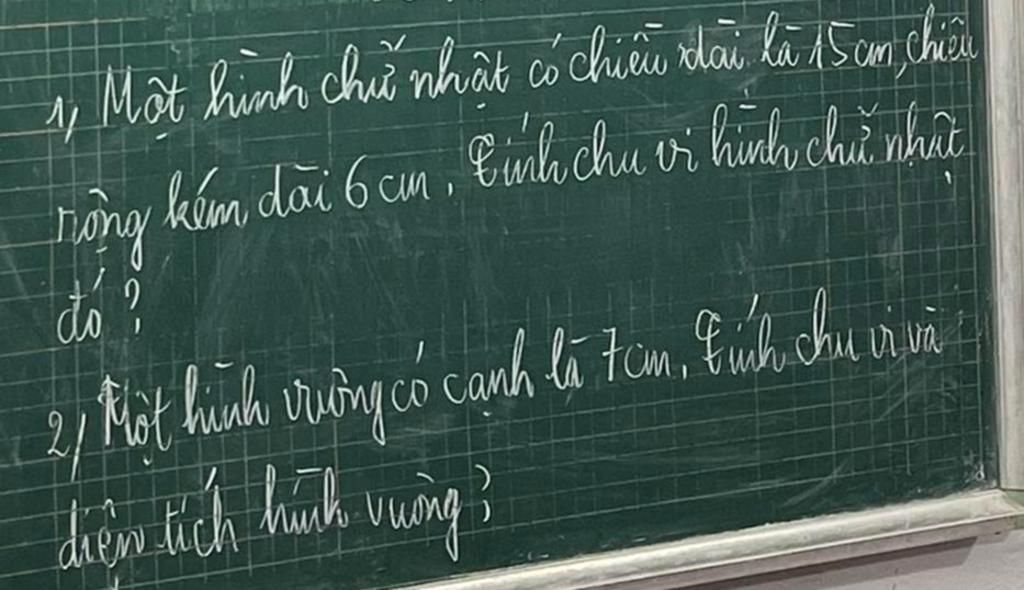 1, Một hình chữ nhật có chiều dài là 15 cm, chiều
rộng kém dài 6 cm. Tính chu vi hình chữ nhật
đó?
2, Một hình vuông có cạnh là 7cm. Tính chu vi và
diện tích hình vuông?